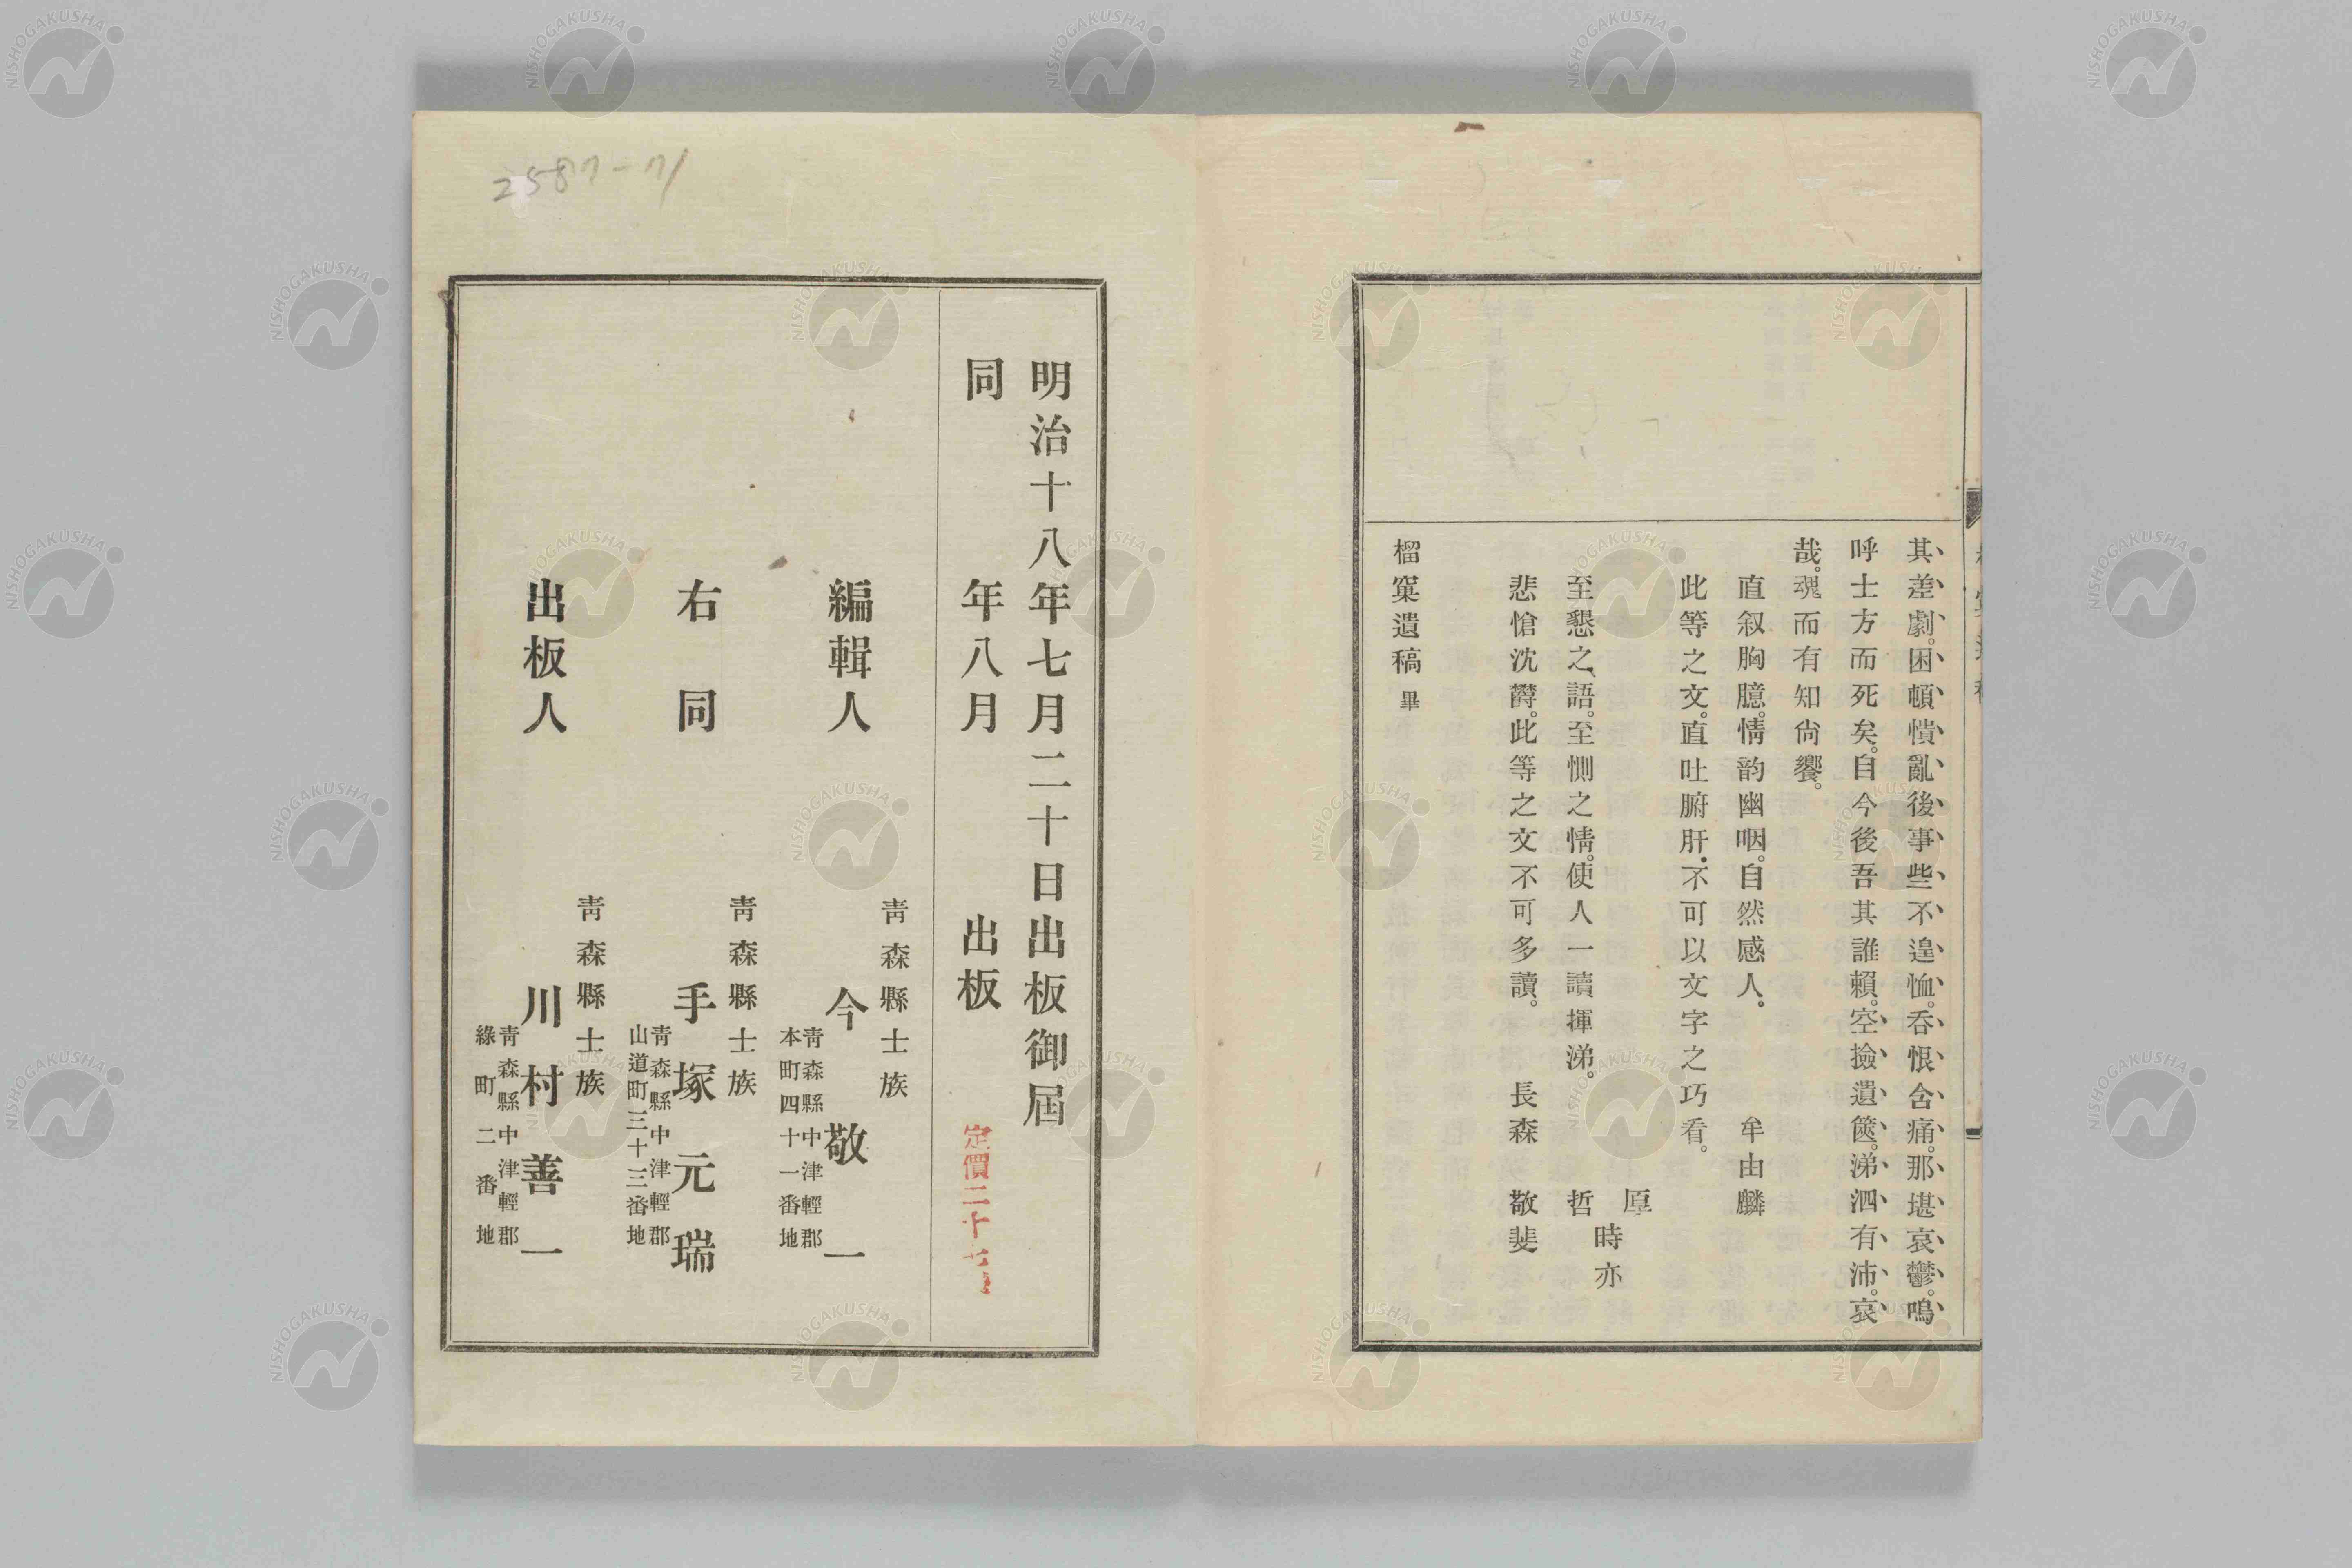 其差劇。困頓憒亂後事些不遑恤。吞恨含痛。那堪哀鬱。嗚
呼士方而死矣。自今後吾其誰賴。空撿遺篋。涕泗有沛。哀
哉。魂而有知尙饗。
直叙胸臆。情韵幽咽。自然感人。 牟由麟
此等之文。直吐腑肝。不可以文字之巧看。
厚時亦
至懇之語。至惻之情。使人一讀揮涕。 哲
悲愴沈欝。此等之文不可多讀。 長森 敬斐
榴窠遺稿 畢
明治十八年七月二十日出板御屆
同 年八月 出板
定價二十七
青森縣士族
編輯人 今 敬一
青森縣中津輕郡
本町四十一番地
青森縣士族
右同 手塚元瑞
青森縣中津輕郡
山道町三十三番地
青森縣士族
出板人 川村善一
青森縣中津輕郡
綠町二番地
2587-71
NISHOGAKUSHA